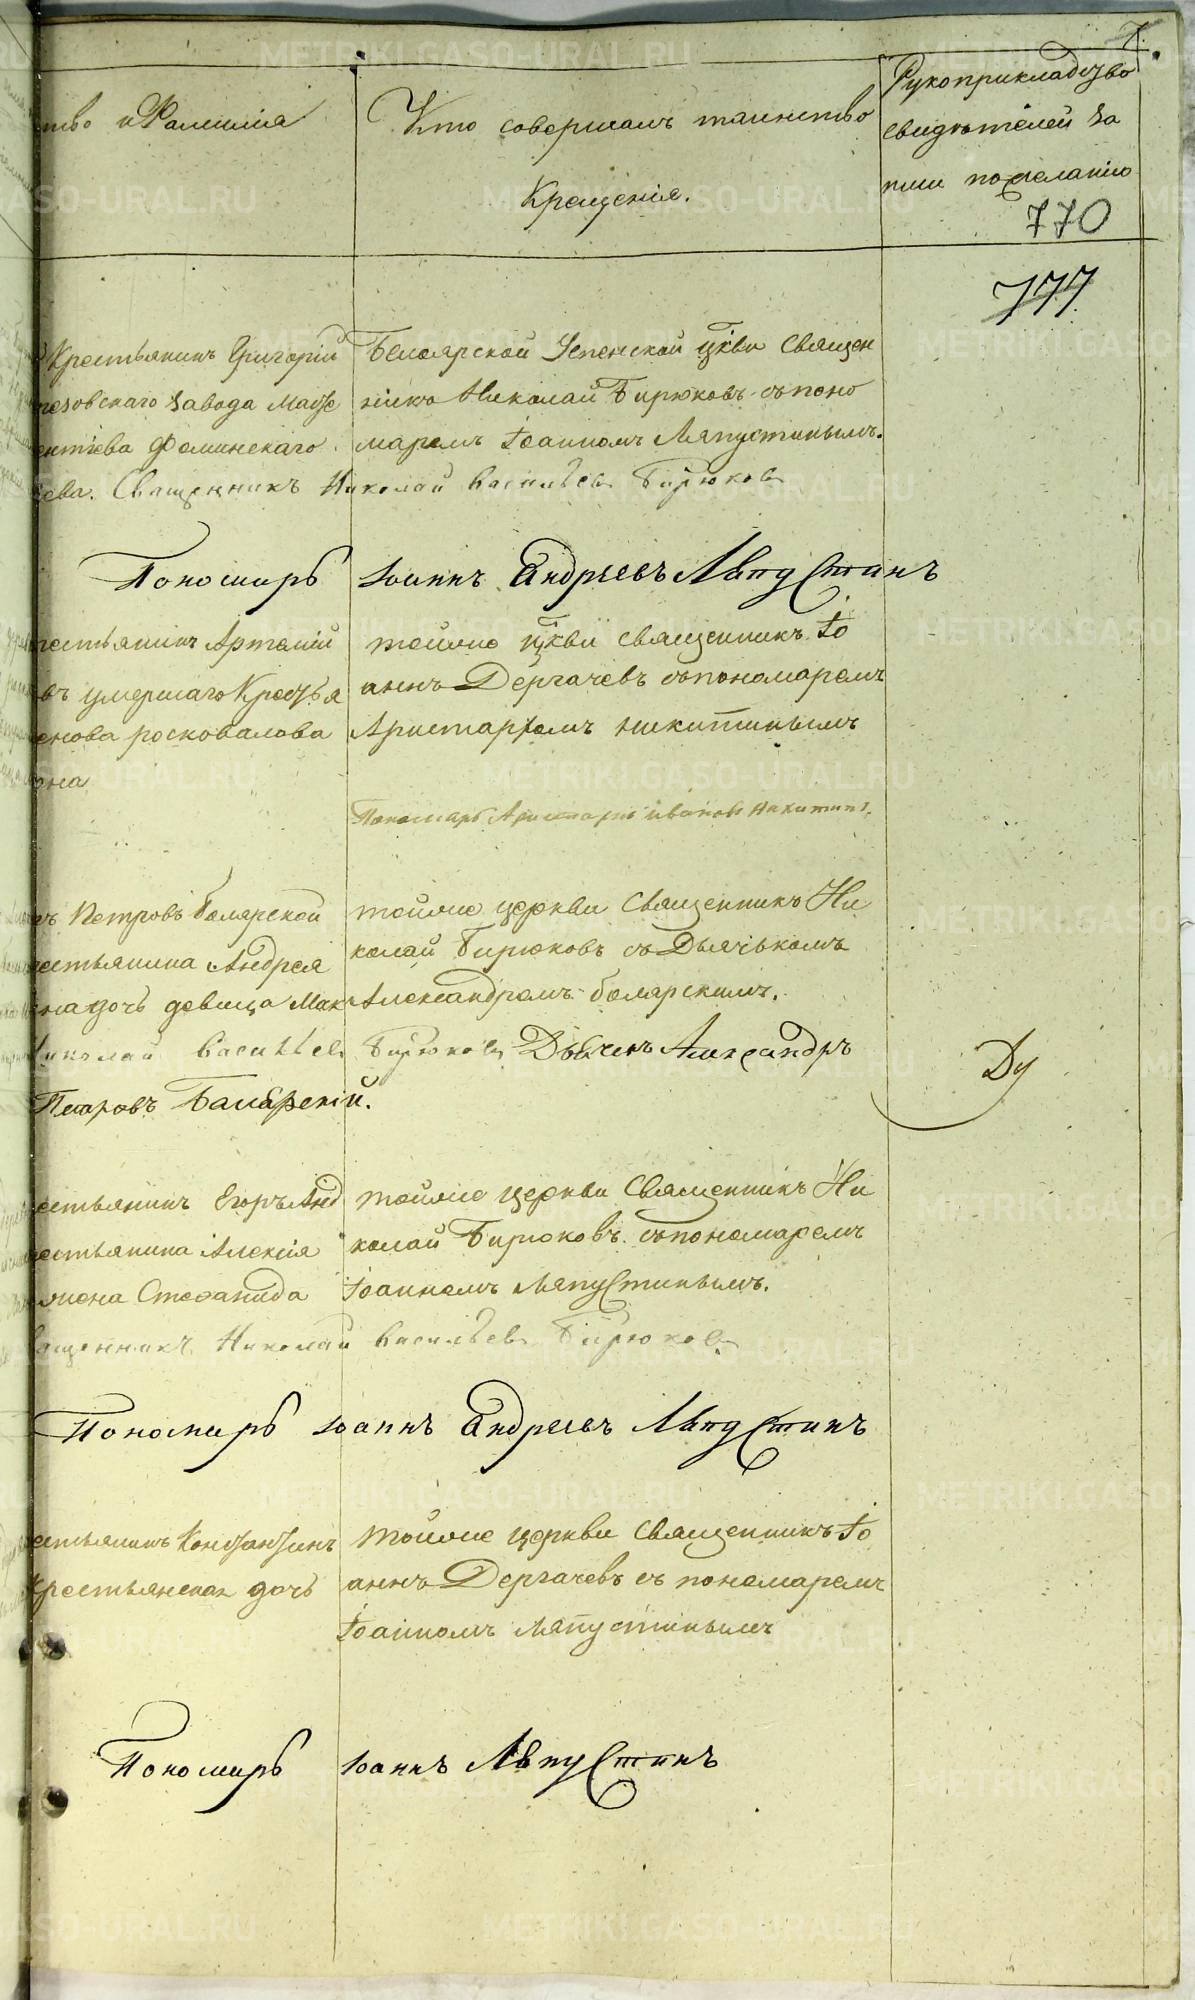 7.
тво и Фамилiя
Кто совершалъ таинство
Крещенiя.
Рукоприкладство
свидѣтелей за
писи по желанiю
770
777
Крестьянинъ Григорiй
резовскаго завода Матѳ
ентiева Фоминскаго
ева. Священникъ Николай Васильевъ Бирюковъ
Белоярской Успенской цкви Священ
никъ Николай Бирюковъ съ поно
маремъ Iоанномъ Ляпустинымъ.
Пономарь Iоаннъ Андреевъ Ляпустинъ
рестьянинъ Артемiй
въ умершаго Крестья
енова росковалова
она
тойже цкви священникъ Iо
аннъ Дергачевъ съ пономаремъ
Аристархомъ никитинымъ
Пономарь Аристархъ Ивановъ Никитинъ.
ъ Петровъ болярской
рестьянина Андрея
на дочь девица Мак
Николай Васильевъ Бирюковъ Дьячекъ Александръ
Петровъ Балярскiй.
тойже церкви Священникъ Ни
колай Бирюковъ съ Дьячькомъ
Александромъ болярскимъ.
Ду
естьянинъ Егоръ Анд
рестьянина Алексiя
жена Стефанида
вященникъ Николай Васильевъ Бирюковъ
тойже церкви Священникъ Ни
колай Бирюковъ съ пономаремъ
Iоанномъ Ляпустинымъ.
Пономарь Iоаннъ Андреевъ Ляпустинъ
естьянинъ Констянтинъ
Крестьянская дочь
тойже церкви Священникъ Iо
аннъ Дергачевъ съ пономаремъ
Iоанномъ Ляпустинымъ
Пономарь Iоаннъ Ляпустинъ